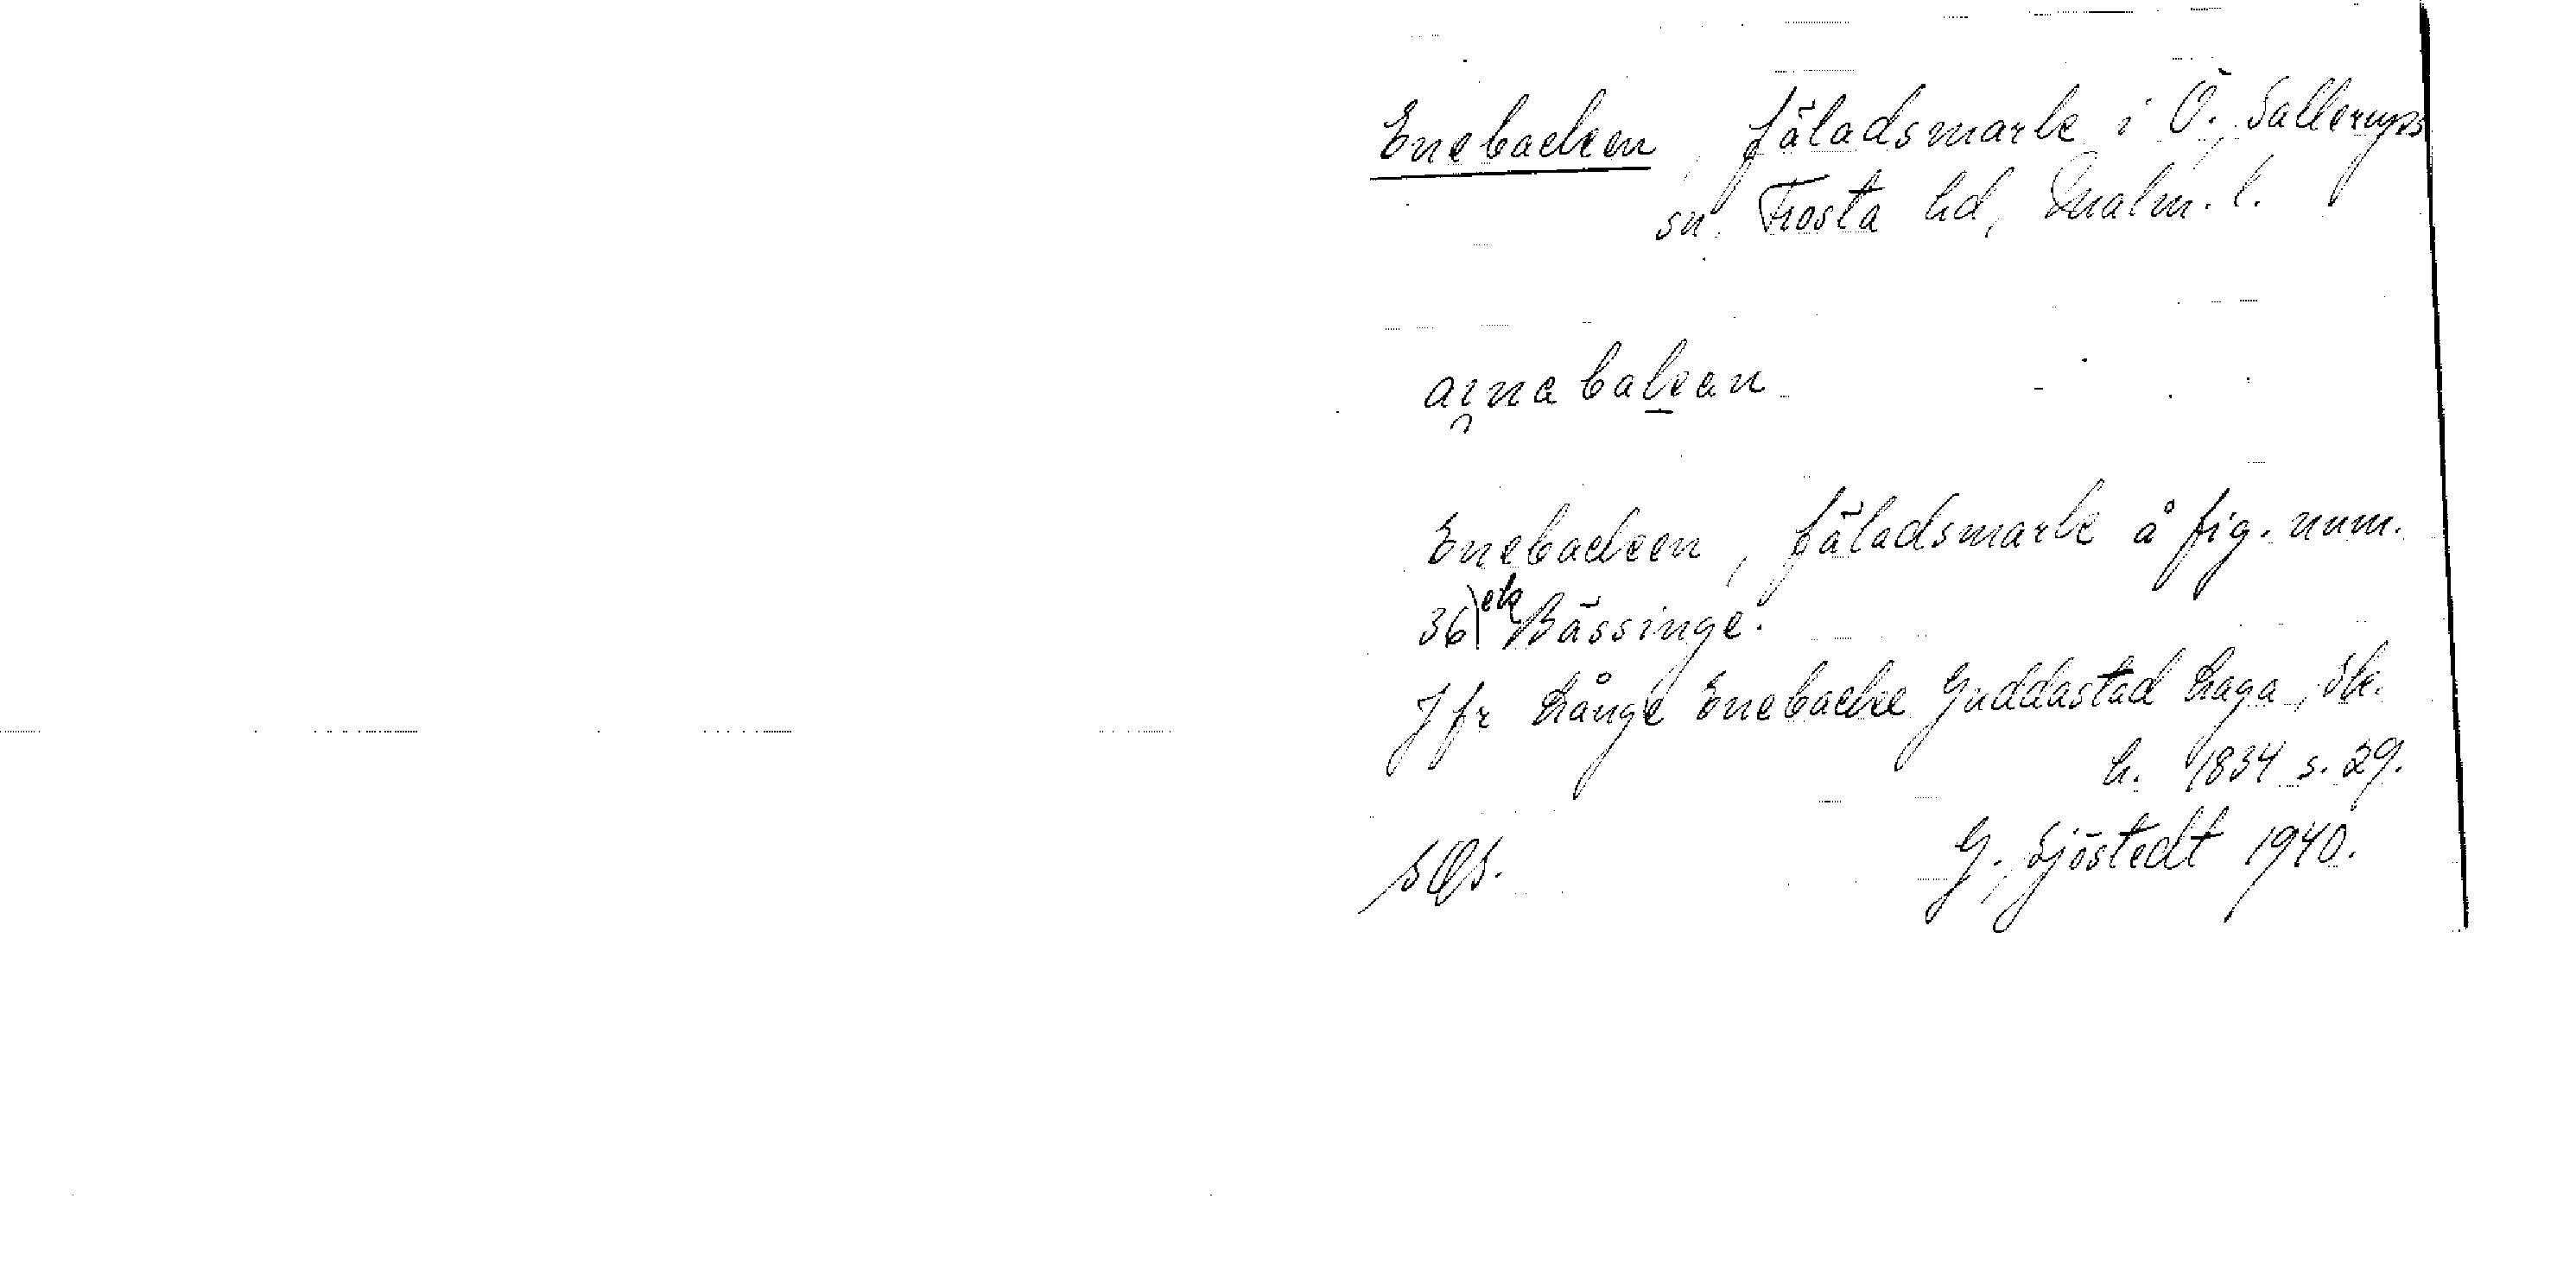 Enebacken, fäladsmark i Ö. Sallerups
sn. Frosta hd, Malm. l.
aınabakan
Enebacken, fäladsmark å fig. num.
36 eka Bässinge.
Jfr Långe Enebacke Guddastad Laga, sk.
h. 1834 s. 29.
SOS. G. Sjöstedt 1940.